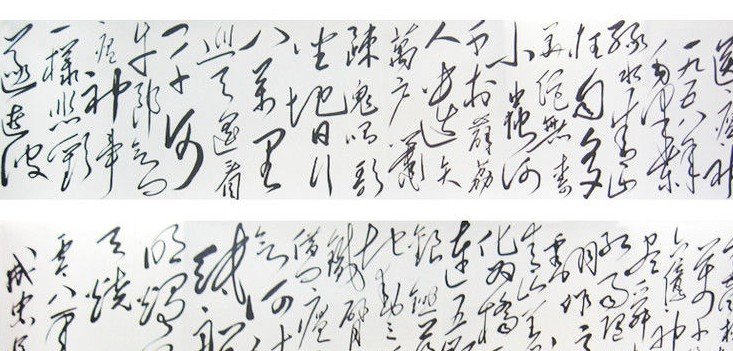 送瘟神
一九五八年
绿水青山
枉自多
华佗无奈
小虫何
千村薜荔
人遗矢
萬户萧
疎鬼唱歌
坐地日行
八万里
巡天遥看
一千河
牛郎欲问
瘟神事
一样悲歡
逐逝波
万千
六億神
尽舜
红雨随
翻作
青山着
化为桥
连五
银锄落
地动三
铁臂
借问瘟
欲何
纸船
明烛
天烧